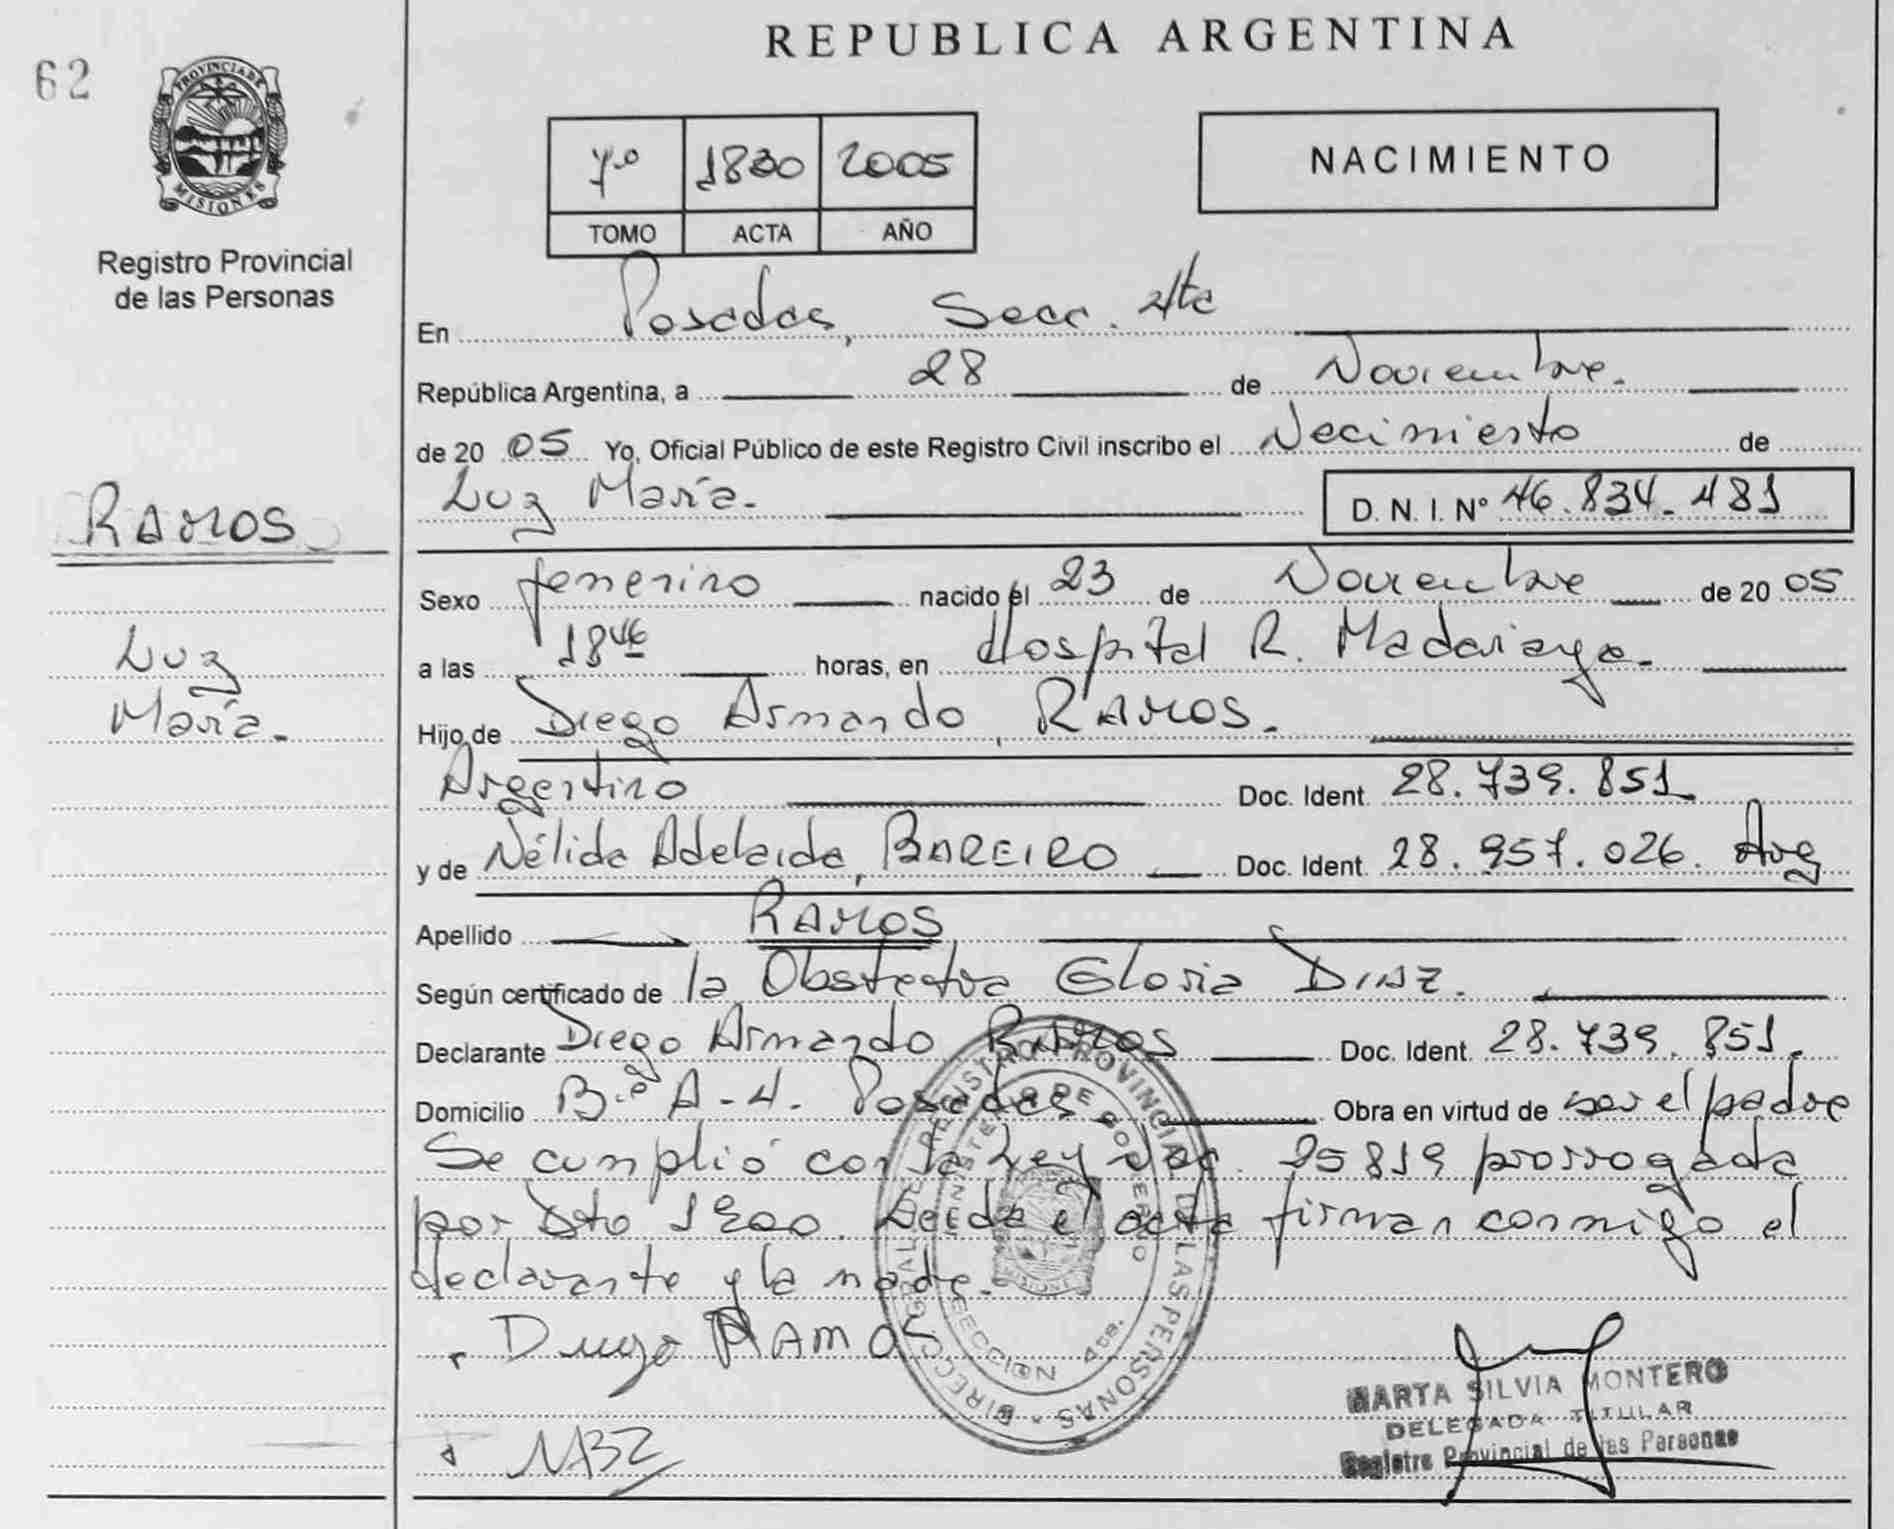 62
PROVINCIA DE
MISIONES
Registro Provincial
de las Personas
RAMOS
Luz
María.
REPUBLICA ARGENTINA
7º 1830 2005
TOMO ACTA AÑO
NACIMIENTO
En Posadas, Secc. 4ta
República Argentina, a 28 de Noviembre.
de 20 05 Yo, Oficial Público de este Registro Civil inscribo el Nacimiento de
Luz María. D. N. I. Nº 46.834.481
Sexo femenino nacido el 23 de Noviembre de 20 05
a las 18 46 horas, en Hospital R. Madariaga.
Hijo de Diego Armando, RAMOS.
Argentino Doc. Ident. 28.739.851
y de Nélida Adelaida, BAREIRO Doc. Ident. 28.957.026. Arg
Apellido RAMOS
Según certificado de la Obstetra Gloria DIAZ.
Declarante Diego Armando RAMOS Doc. Ident. 28.739.851.
Domicilio Bº A-4. Posadas Obra en virtud de ser el padre
Se cumplió con la Ley Nac. 25819 prorrogada
por Dto 1900. Leída el acta firman conmigo el
declarante y la madre.
DIRECC. GRAL. DE REGISTRO PROVINCIAL DE LAS PERSONAS
MINISTERIO DE GOBIERNO
SECCION 4ta.
Diego RAMOS
MARTA SILVIA MONTERO
DELEGADA TITULAR
Registro Provincial de las Personas